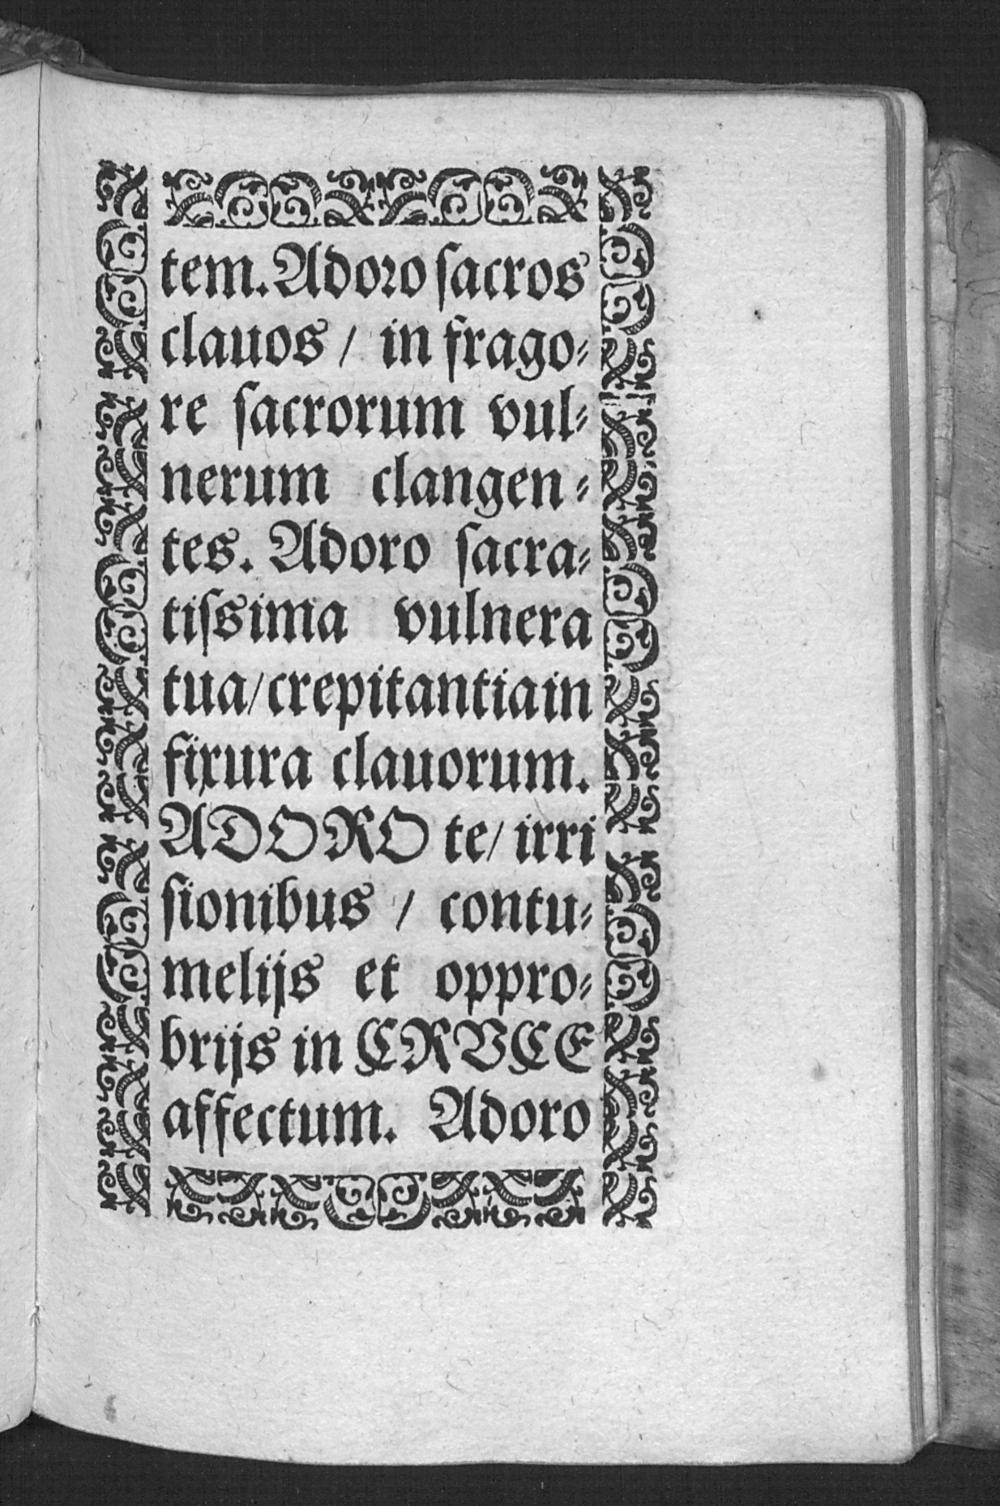 tem. Adoro ſacros
clauos / in frago⸗
re ſacrorum vul⸗
nerum clangen⸗
tes. Adoro ſacra⸗
tiſsima vulnera
tua/crepitantiain
fixura clauorum.
ADORO te/ irri
ſionibus / contu⸗
melijs et oppro⸗
brijs in CRVCE
affectum. Adoro